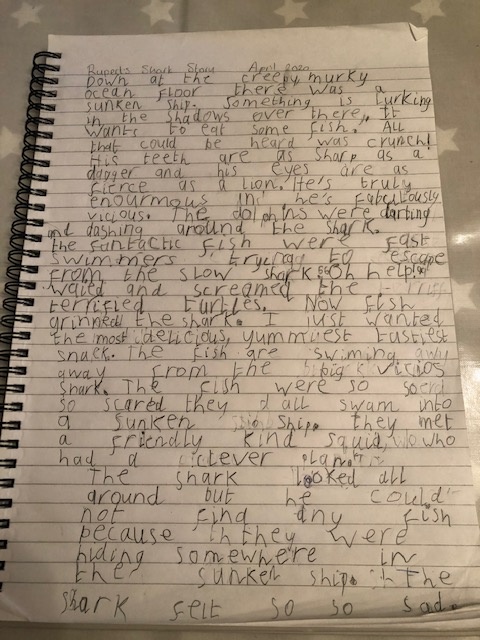 Rupert's Shark Story April 2020
Down at the creepy, murky
ocean floor there was a
sunken ship. Something is lurking
in the shadows over there, It
wants to eat some fish. All
that could be heard was crunch!
His teeth are as sharp as a
dagger and his eyes are as
fierce as a lion. He's truly
enourmous in he's fabulously
vicious. The dolphins were darting
and dashing around the shark.
the fantactic fish were fast
swimmers trying to escape
from the slow shark. "Oh help"
waied and screamed the
terrified turtles. Now fish
grinned the shark. I just wanted
the most delicious, yummiest tastiest
snack. The fish are swiming
away from the big vicios
shark. The fish were so
so scared they all swam into
a sunken ship. they met
a friendly kind squid, who
had a clever plan.
The shark looked all
around but he could
not find any fish
because they were
hiding somewhere in
the sunken ship. The
shark felt so so sad.